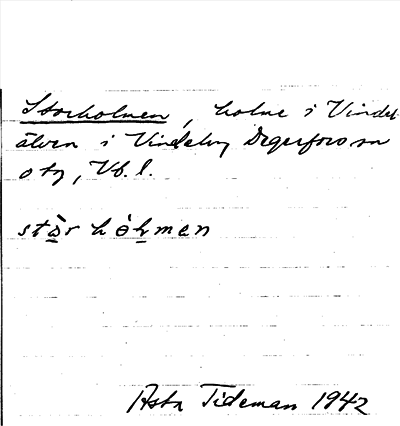 Storholmen, holme i Vindel-
älven i Vindeln, Degerfors sn
o tg, Vb. l.
stàr hólmen
Asta Tideman 1942